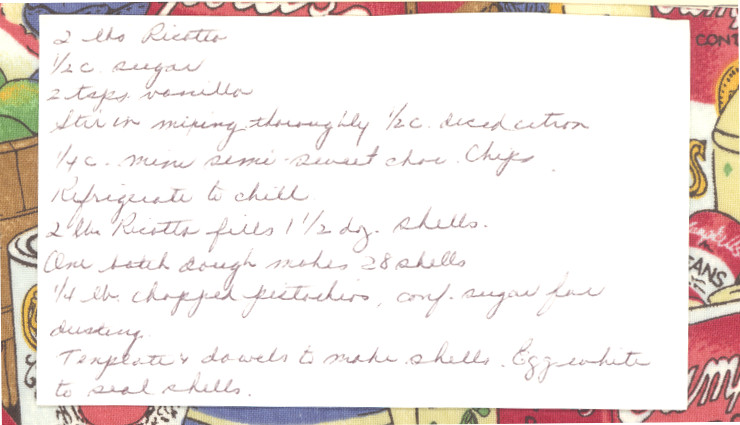 2 lbs Ricotta
1/2 c. sugar
2 tsps vanilla
Stir in mixing thoroughly 1/2 c. diced citron
1/4 c. mini semi-sweet choc. chips.
Refrigerate to chill
2 lbs Ricotta fills 1 1/2 dz. shells.
One batch dough makes 28 shells
1/4 lb. chopped pistachios, conf. sugar for
dusting.
Template & dowels to make shells. Egg white
to seal shells.
CONT
ANS